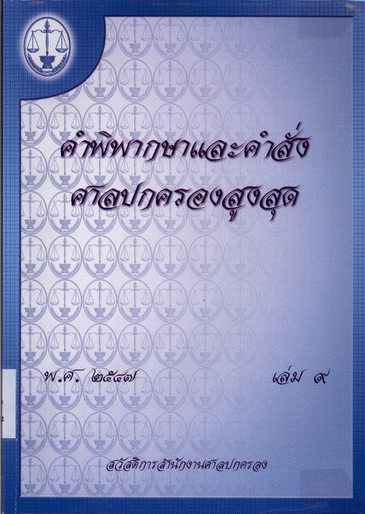 คำพิพากษาและคำสั่ง
ศาลปกครองสูงสุด
พ.ศ. ๒๕๔๗ เล่ม ๙
สวัสดิการสำนักงานศาลปกครอง